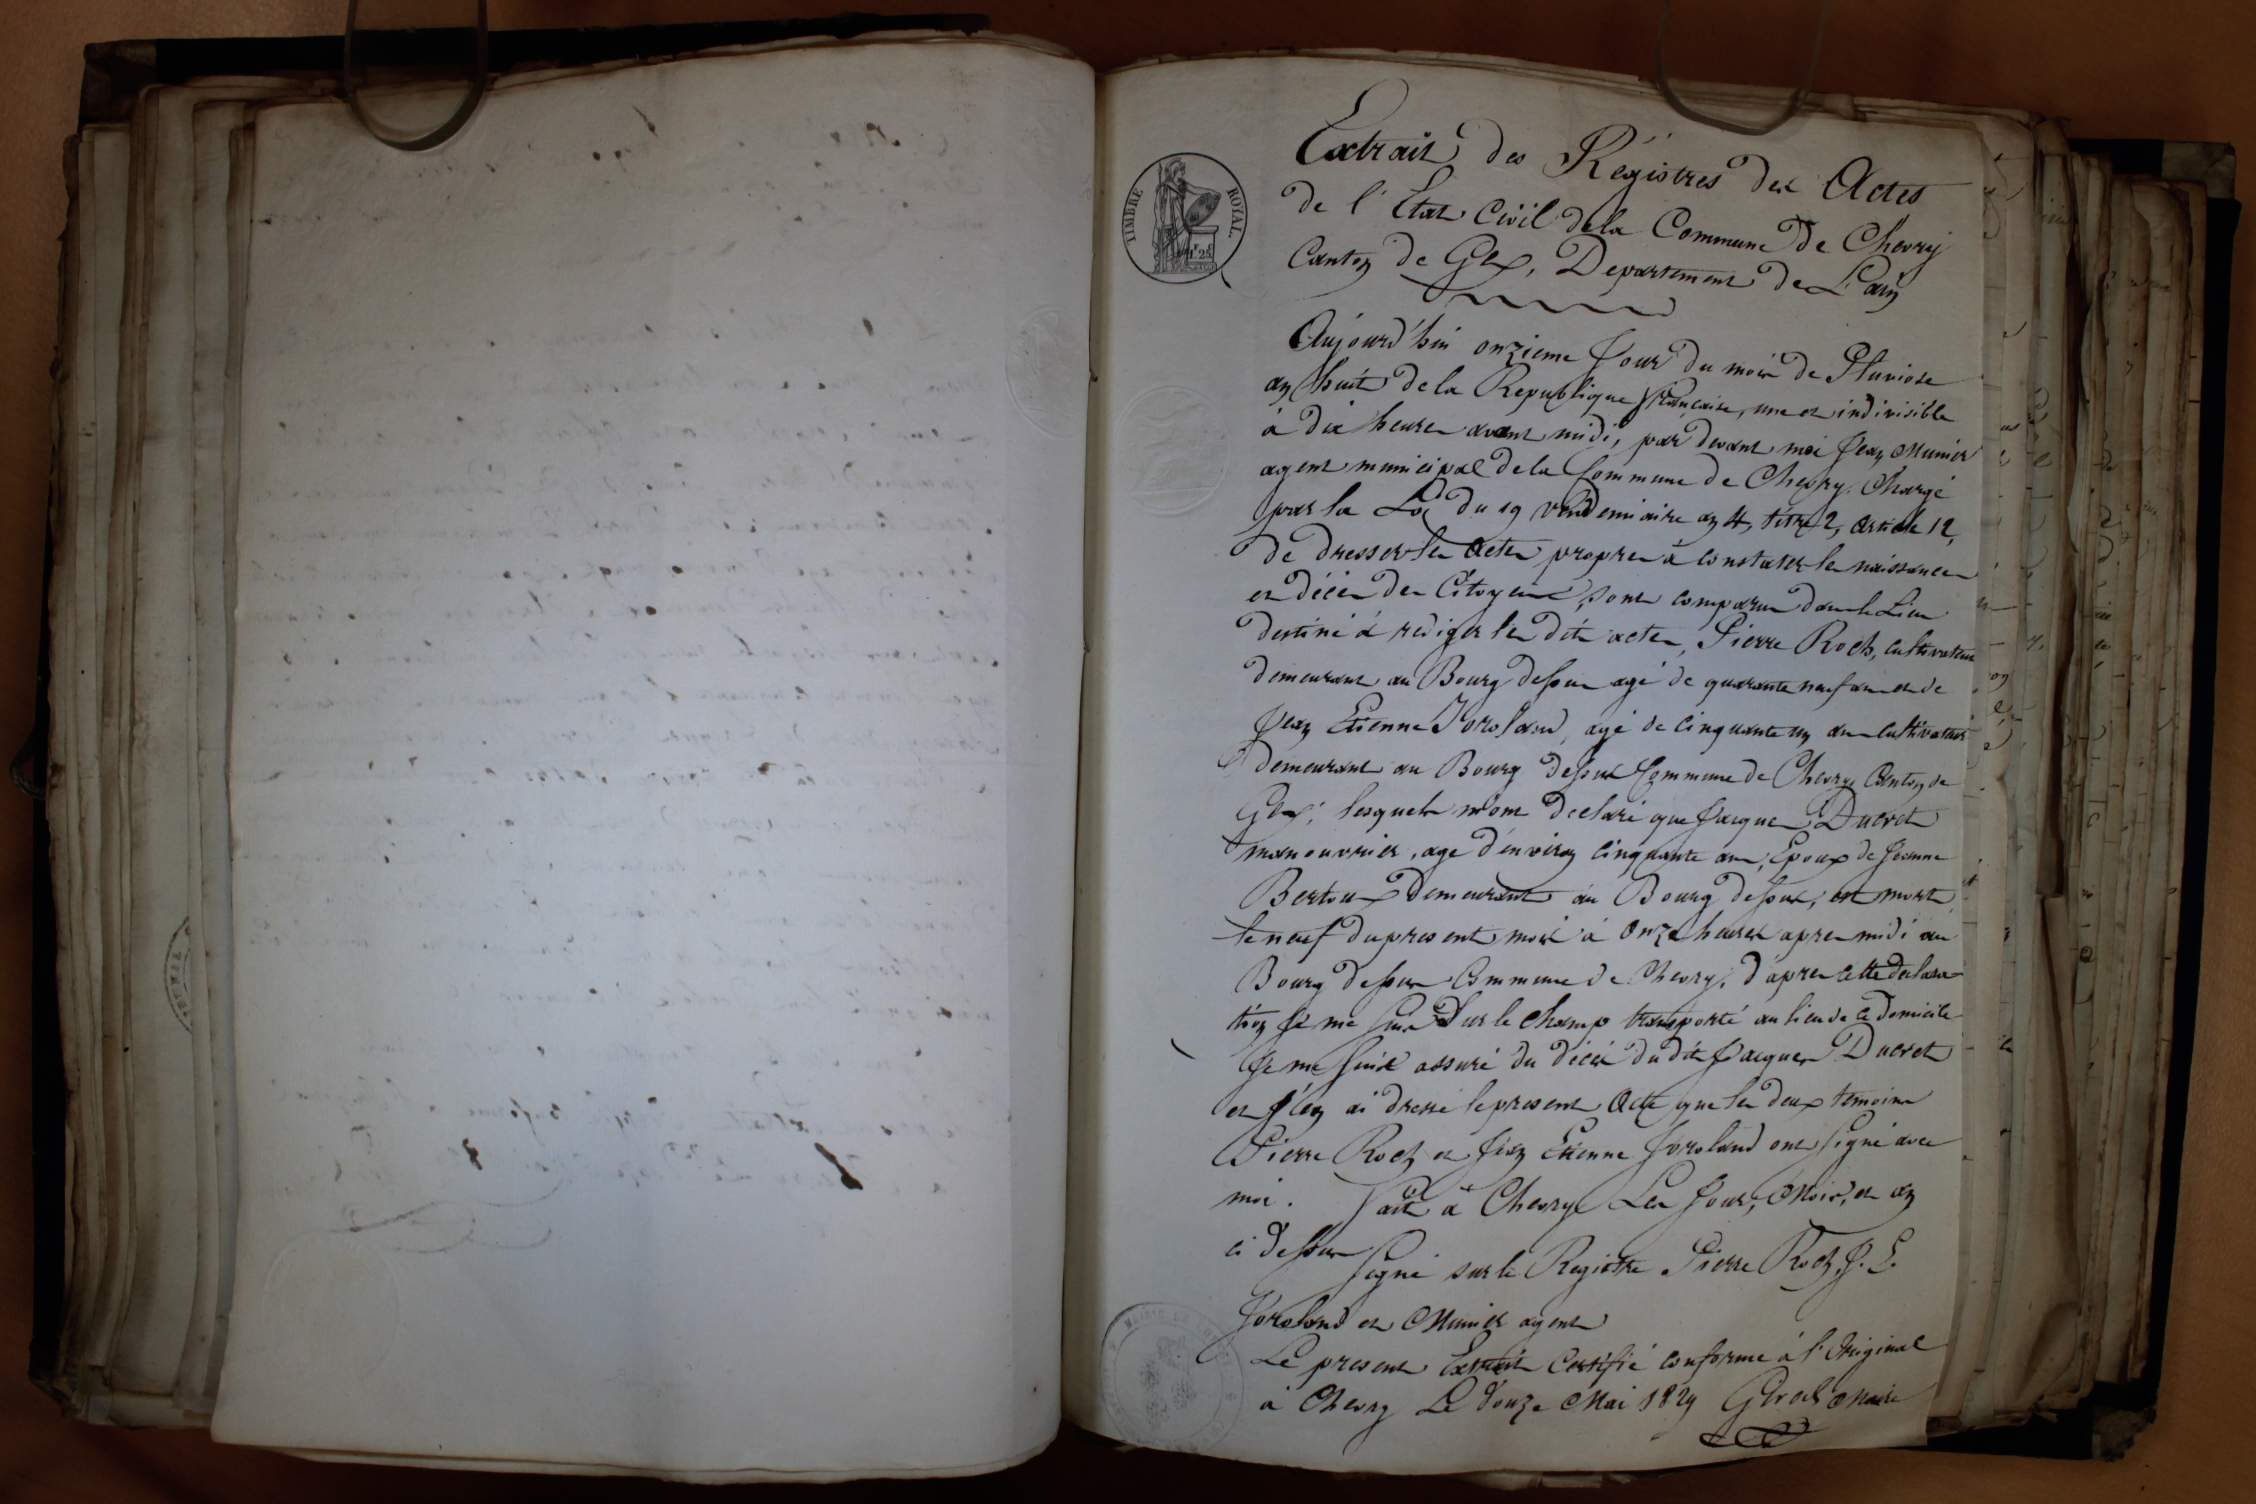 TIMBRE ROYAL.
1f 25c
Extrait des Régistres des Actes
de l'Etat Civil de la Commune de Chevry
Canton de Gex, Departement de L'ain
Aujourd'hui onzieme Jour du mois de Pluviose
an huit de la Republique française, une et indivisible
à dix heures avant midi, par devant moi Jean Munier
agent municipal de la Commune de Chevry, Chargé
par la Loi du 19 Vendemiaire an 4, titre 2, Article 12,
de dresser les Actes propres à constater les naissances
et décès des Citoyens, sont comparus dans le Lieu
destiné à rediger les dits actes, Pierre Roch, cultivateur
demeurant au Bourg dessus agé de quarante neuf ans et de
Jean Etienne agé de cinquante un ans cultivateur
demeurant au Bourg dessus Commune de Chevry Canton de
Gex; lesquels m'ont declaré que Jacques Ducret
manouvrier, age d'environ cinquante ans, Epoux de Jeanne
Bertoux demeurant au Bourg dessus, est mort
le neuf du present mois à Onze heures apres midi au
Bourg dessus Commune de Chevry; d'apres cette declara-
tion Je me suis Sur le champ transporté au lieu de ce domicile
Je me suis assuré du décès du dit Jacques Ducret
et J'en ai dressé le present Acte que les deux temoins
Pierre Roch et Jean Etienne ont signé avec
moi. Fait à Chevry Les Jour, Mois, et an
ci dessus
Signé sur le Registre Pierre Roch, J. E.
et Munier agent
Le present Extrait Certifié conforme à l'Original
à Chevry Le douze Mai 1829 Maire